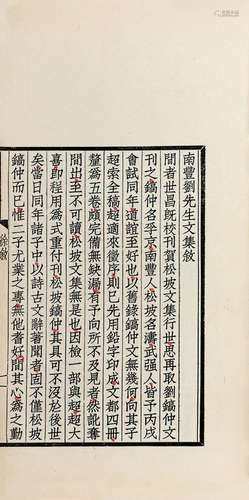 南豐劉先生文集敘
閒者世昌旣校刊賀松坡文集行世思再取劉鎬仲文
刊之鎬仲名孚京南豐人松坡名濤武强人皆予丙戌
會試同年道誼至好也以舊錄鎬仲文無幾何向其子
超索全稿超適來徵序則已先用鉛字印成文都四冊
釐為五卷頗完備無缺漏有予向所不及見者然訛奪
閒出至不可讀松坡文集無是也因檢一部與超超大
喜卽程用為式重付刊松坡鎬仲其具可不沒於後世
矣當日同年諸子中以詩古文辭著聞者固不僅松坡
鎬仲而已惟二子尤業之專無他耆好閒其心為之勤
徐敘
一